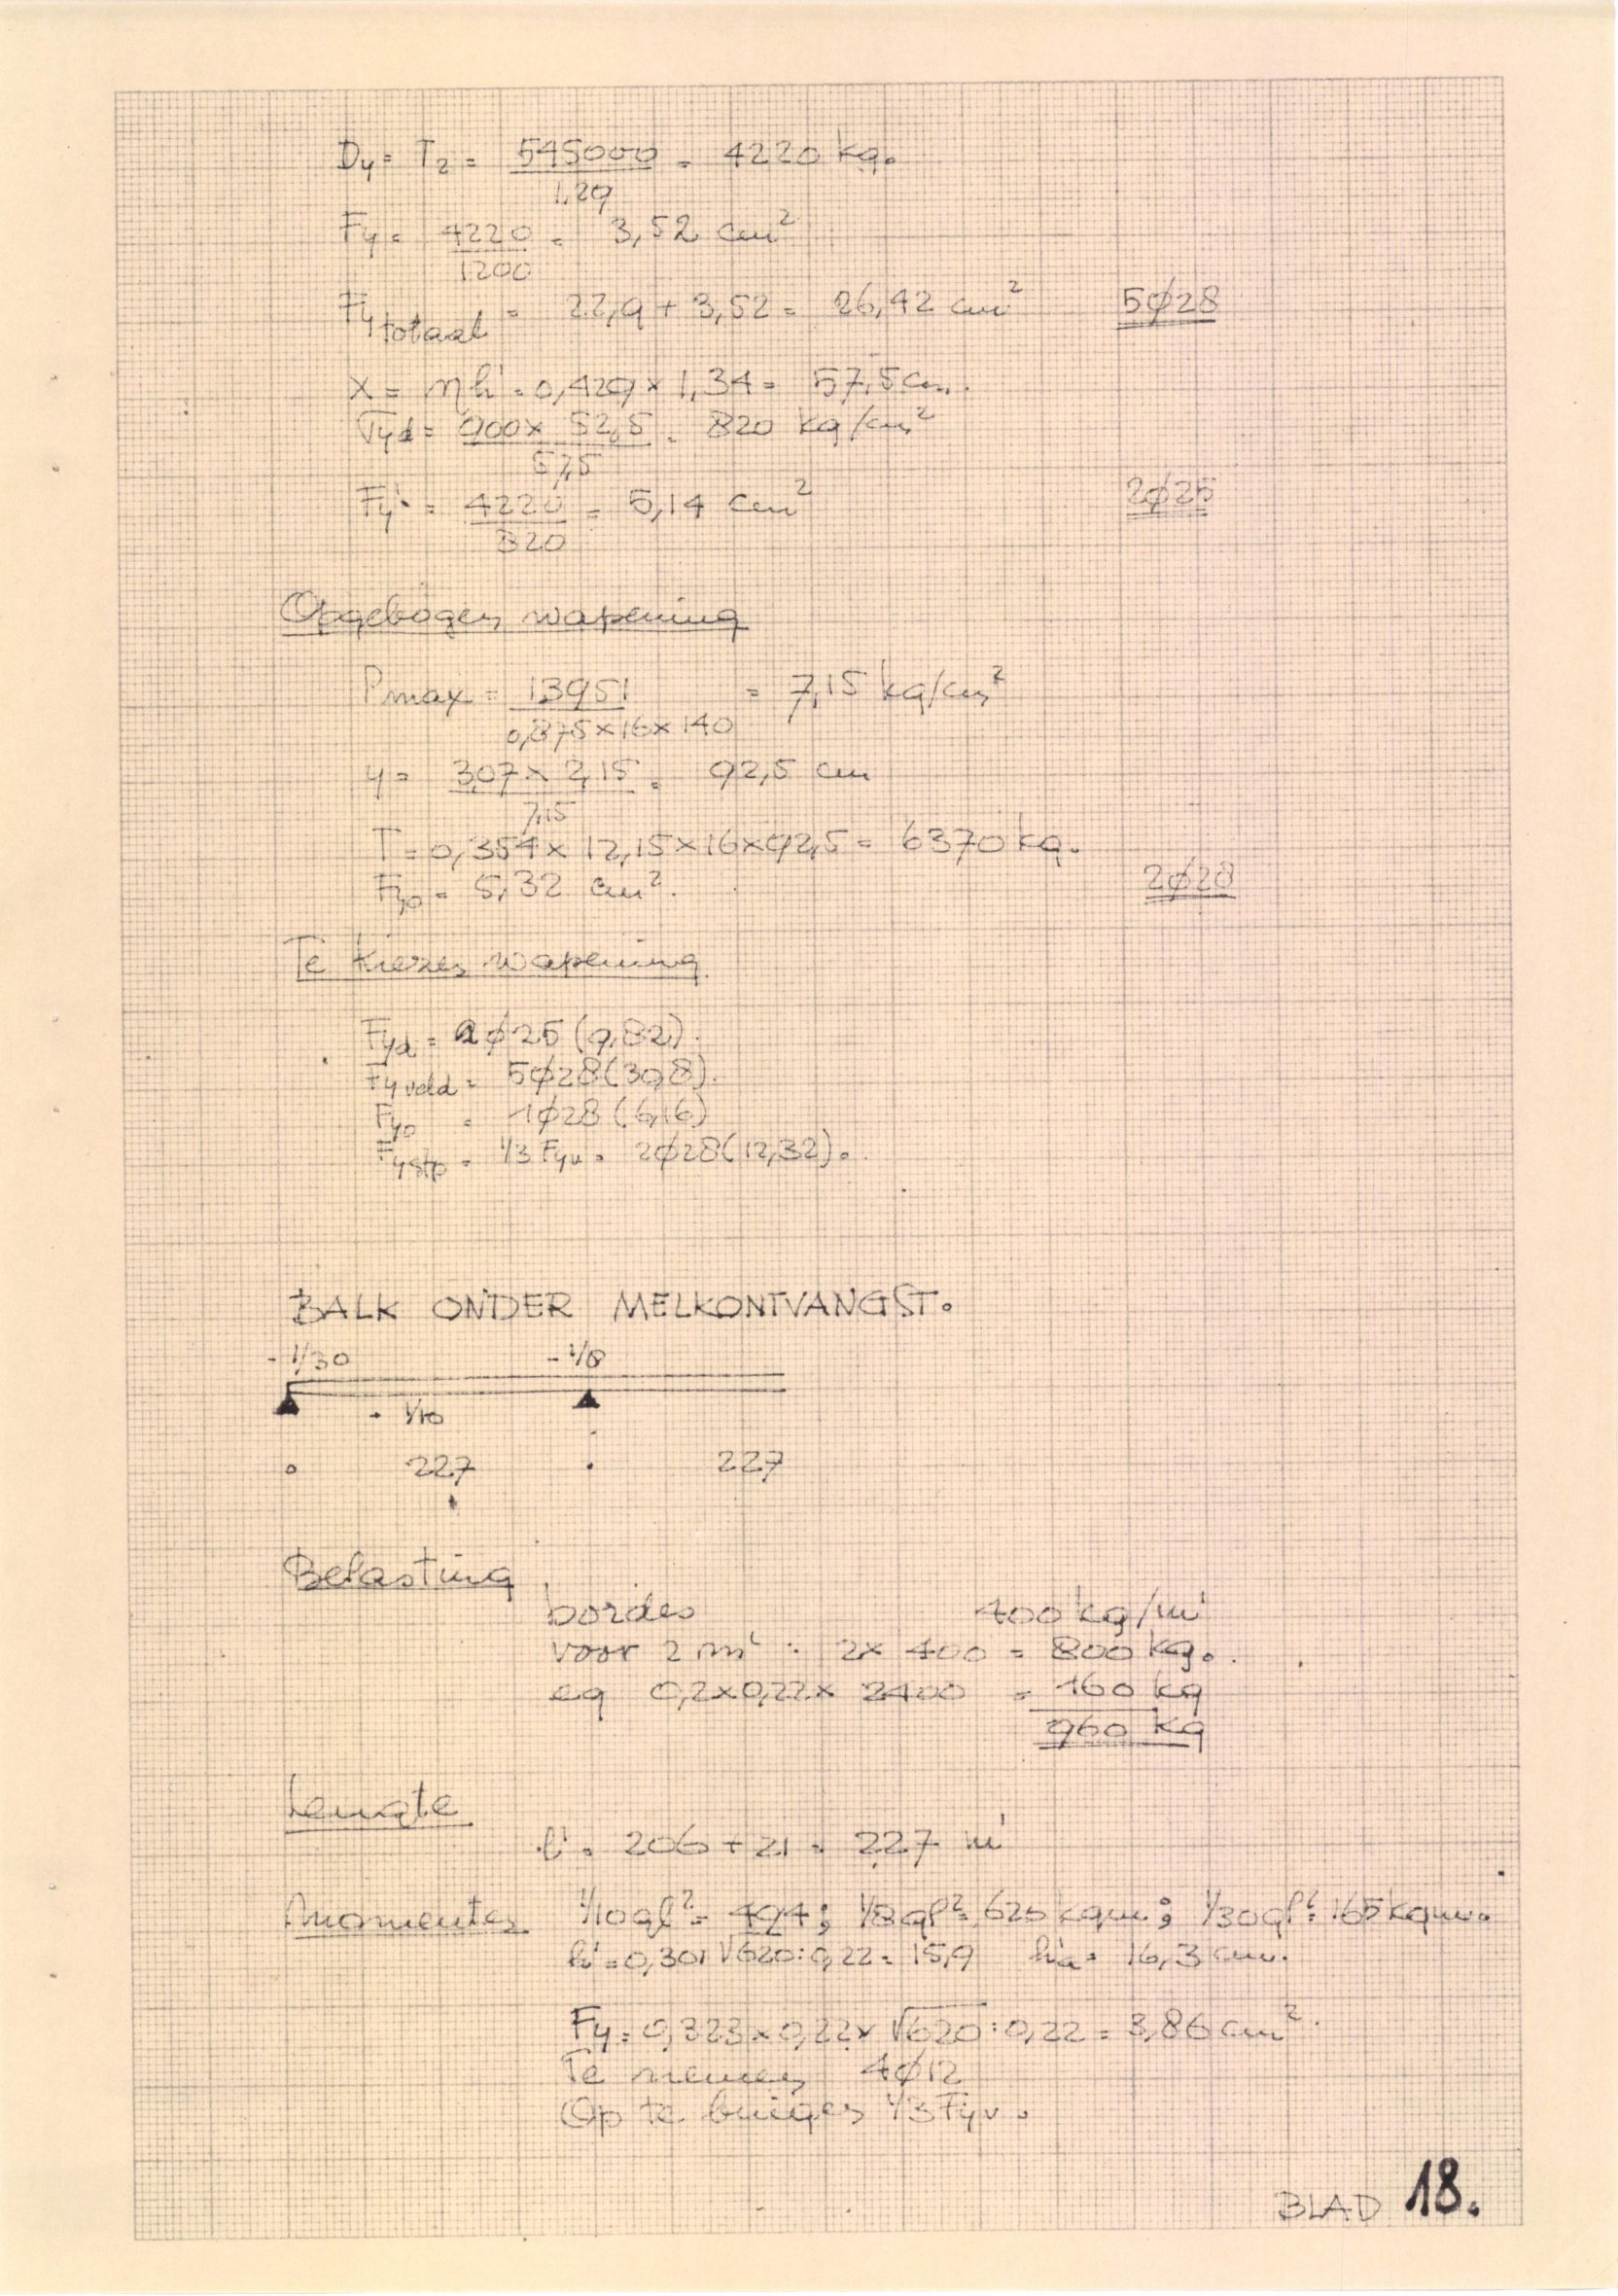 Dy = T2 = 545000 = 4220 kg.
1,29
Fy = 4220 = 3,52 cm²
1200
Fy totaal = 22,9 + 3,52 = 26,42 cm² 5ø28
x = ηh' = 0,429 x 1,34 = 57,5 cm.
σyd = 900 x 52,5 = 820 kg/cm²
57,5
Fy' = 4220 = 5,14 cm² 2ø25
820
Opgebogen wapening
Pmax = 13951 = 7,15 kg/cm²
0,875 x 16 x 140
y = 307 x 2,15 = 92,5 cm
7,15
T = 0,354 x 12,15 x 16 x 92,5 = 6370 kg.
Fyo = 5,32 cm². 2ø28
Te kiezen wapening
Fyd = 2ø25 (9,82).
Fy veld = 5ø28 (30,8).
Fyo = 1ø28 (6,16)
Fystp = 1/3 Fyv = 2ø28 (12,32).
BALK ONDER MELKONTVANGST.
- 1/30 - 1/8
1/10
227 227
Belasting
bordes 400 kg/m'
voor 2 m' : 2x 400 = 800 kg.
eg 0,2x0,22x 2400 = 160 kg
960 kg
Lengte
l' = 206 + 21 = 227 m'
Momenten 1/10 ql² = 494 ; 1/8 ql² = 620 kgm ; 1/30 ql² = 165 kgm.
h' = 0,301 √620:0,22 = 15,9 h'a = 16,3 cm.
Fy = 0,323 x 0,22 x √620:0,22 = 3,86 cm².
Te nemen 4ø12
Op te buigen 1/3 Fyv.
BLAD 18.